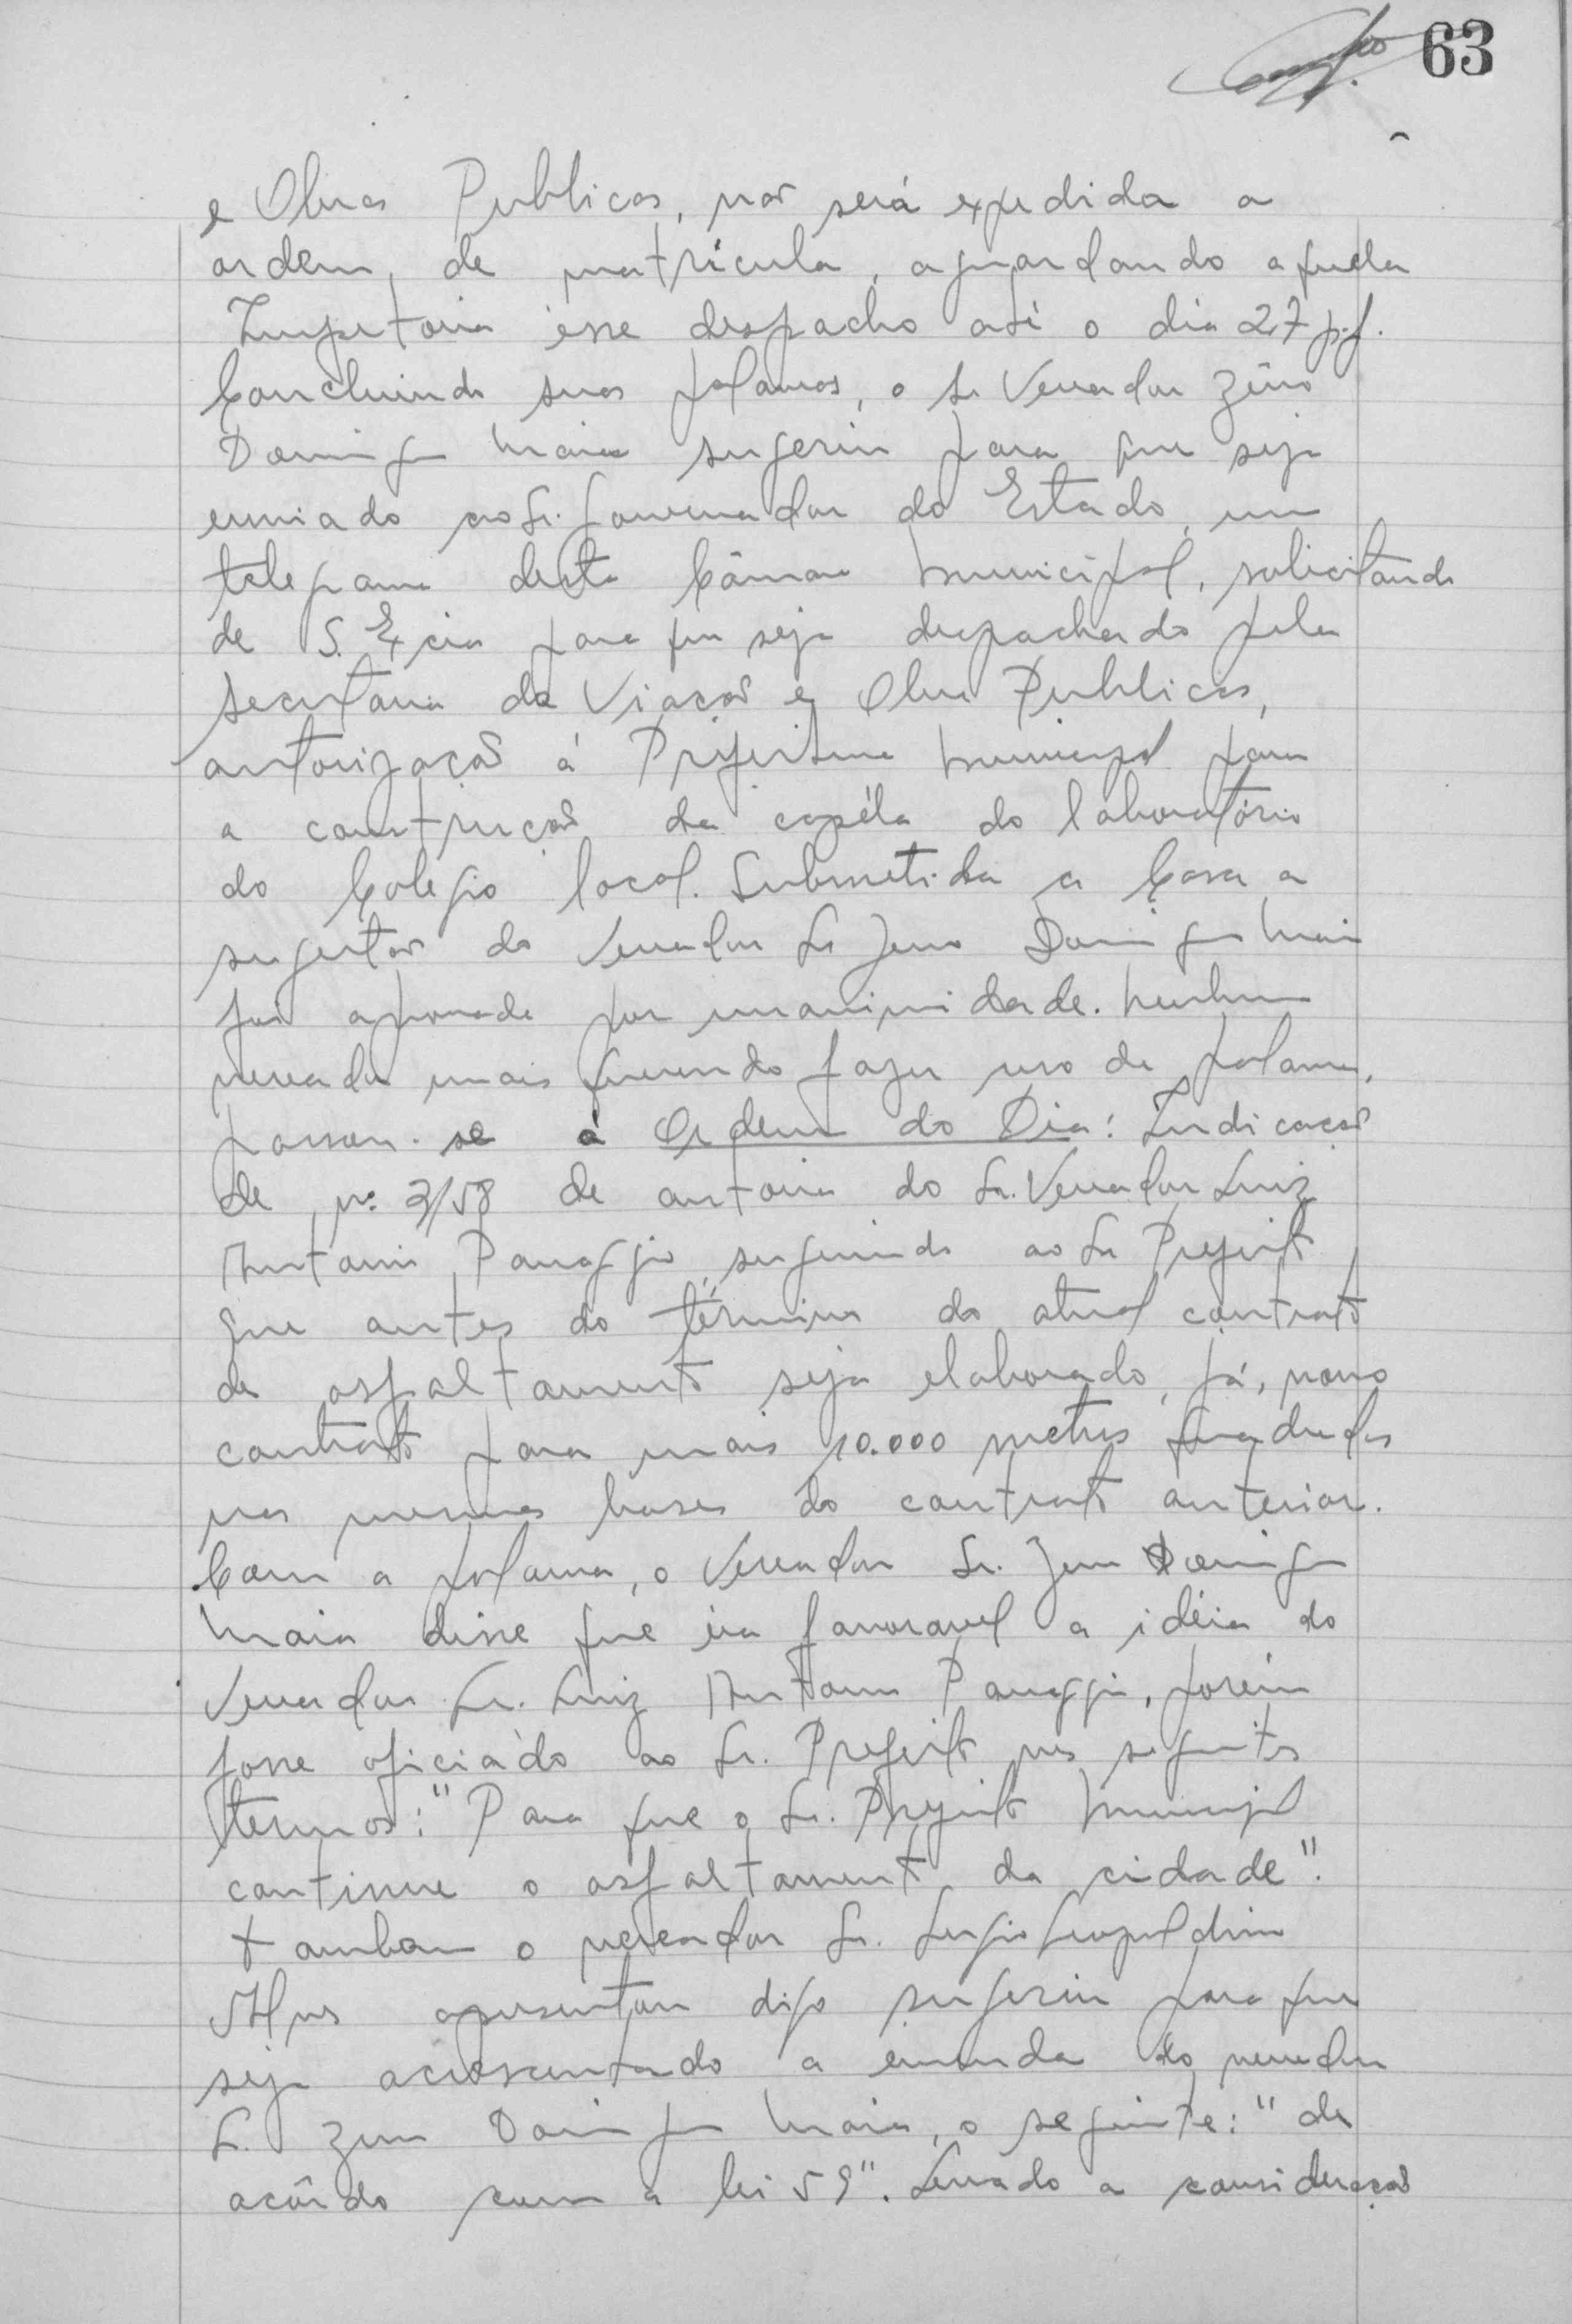 63
e Obras Publicas, não será expedida a
ordem, de matrícula, aguardando aquela
Inspetoria êsse despacho até o dia 27 p.f.
Concluindo suas palavras, o sr Vereador Zeno
Domingues Maia sugeriu para que seja
enviado ao Sr. Governador do Estado, um
telegrama desta Câmara Municipal, solicitando
de S. Excia para que seja despachado pela
Secretaria da Viação e Obras Publicas,
autorização á Prefeitura Municipal para
a construção da capéla do laboratório
do Colegio local. Submetida a Casa a
sugestão do Vereador Sr Zeno Domingues Maia
foi aprovada por unanimidade. Nenhum
vereador mais querendo fazer uso da palavra,
passou-se á Ordem do Dia: Indicação
de nº 3/58 de autoria do Sr. Vereador Luiz
Antonio Panaggio, sugerindo ao Sr Prefeito
que antes do término do atual contrato
de asfaltamento seja elaborado, já, novo
contrato para mais 10.000 metros quadrados
nas mesmas bases do contrato anterior.
Com a palavra, o Vereador Sr. Zeno Domingues
Maia disse que éra favoravel a idéia do
Vereador Sr. Luiz Antonio Panaggio, porém
fosse oficiádo ao Sr. Prefeito nos seguintes
termos: "Para que o Sr. Prefeito Municipal
continue o asfaltamento da cidade".
Tambem o vereador Sr. Sergio Leopoldino
Alves apresentou digo sugeriu para que
seja acrescentado a emenda do vereador
Sr. Zeno Domingues Maia, o seguinte: "de
acôrdo com a lei 59". Levado a consideração